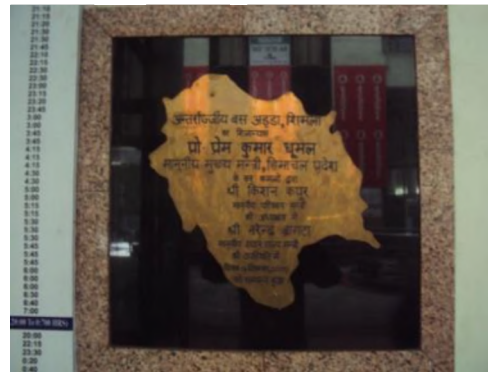 21:10
21:15
21:20
21:30
21:45
22:10
22:15
22:30
22:30
23:00
23:15
23:20
23:45
3:00
3:40
3:45
4:15
4:15
4:30
4:30
5:00
5:15
5:15
5:30
5:30
5:30
5:45
5:45
6:00
6:00
6:00
6:30
6:40
7:00
20:00
22:15
23:30
0:20
0:40
अन्तर्राज्यीय बस अड्डा, शिमला
का शिलान्यास
प्रो प्रेम कुमार धूमल
माननीय मुख्य मन्त्री, हिमाचल प्रदेश
के कर कमलों द्वारा
श्री किशन कपूर
माननीय परिवहन मन्त्री
की अध्यक्षता में
श्री नरेन्द्र बरागटा
माननीय राज्य मन्त्री
की उपस्थिति में
सम्पन्न हुआ